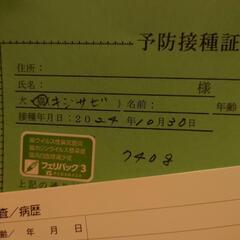 予防接種証
住所:
氏名: 様
犬 猫 キジサビ)名前: 年齢
接種年月日:2024年10月30日
猫ウイルス性鼻気管炎
猫カリシウイルス感染症
猫汎白血球減少症
フェリバック3
740g
上記の
査/病歴
齢/ 年 月 日